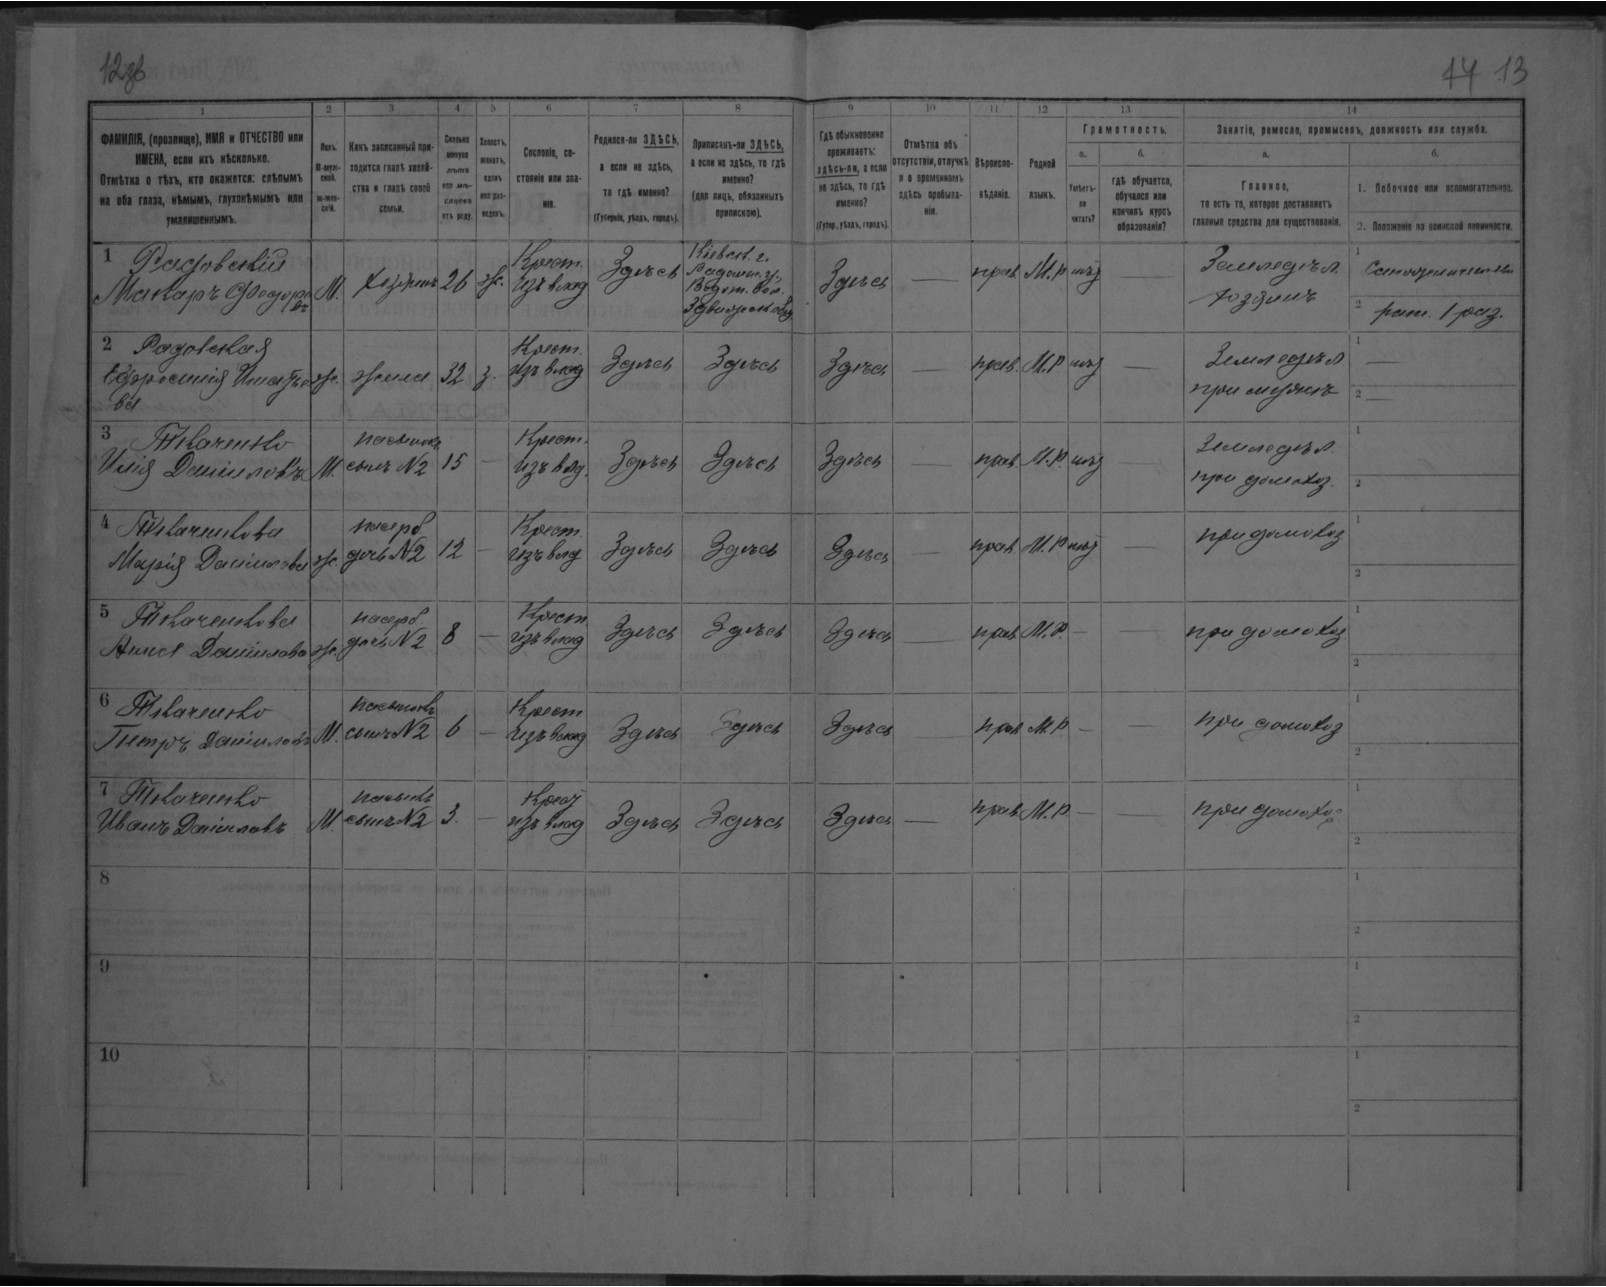 12об
14 13
1 2 3 4 5 6 7 8 9 10 11 12 13 14
ФАМИЛІЯ, (прозвище), ИМЯ и ОТЧЕСТВО или
ИМЕНА, если ихъ нѣсколько.
Отмѣтка о тѣхъ, кто окажется: слѣпымъ
на оба глаза, нѣмымъ, глухонѣмымъ или
умалишеннымъ.
Полъ.
М-муж-
ской.
Ж-жен-
скій.
Какъ записанный при-
ходится главѣ хозяй-
ства и главѣ своей
семьи.
Сколько
минуло
лѣтъ
или мѣ-
сяцевъ
отъ роду.
Холостъ,
женатъ,
вдовъ
или раз-
веденъ.
Сословіе, со-
стояніе или зва-
ніе.
Родился-ли ЗДѢСЬ,
а если не здѣсь,
то гдѣ именно?
(Губернія, уѣздъ, городъ).
Приписанъ-ли ЗДѢСЬ,
а если не здѣсь, то гдѣ
именно?
(для лицъ, обязанныхъ
припискою).
Гдѣ обыкновенно
проживаетъ:
здѣсь-ли, а если
не здѣсь, то гдѣ
именно?
(Губер., уѣздъ, городъ).
Отмѣтка объ
отсутствіи, отлучкѣ
и о временномъ
здѣсь пребыва-
ніи.
Вѣроиспо-
вѣданіе.
Родной
языкъ.
Грамотность.
а.
Умѣетъ-
ли
читать?
б.
гдѣ обучается,
обучался или
кончилъ курсъ
образованія?
Занятіе, ремесло, промыселъ, должность или служба.
а.
Главное,
то есть то, которое доставляетъ
главныя средства для существованія.
б.
1. Побочное или вспомогательное.
2. Положеніе по воинской повинности.
1 Радовскій
Макаръ Федоровъ
М.
хозяинъ
26
ж.
Крест.
изъ влад
Здѣсь
Кіевск. г.
Радомы. у.,
вол.
Здѣсь
—
прав.
М.Р
нѣт
—
Земледѣл.
хозяинъ
1
2 рат. 1 раз.
2 Радовская
Ефросинія Игнатьева
ж.
жена
32
з.
Крест.
изъ влад
Здѣсь
Здѣсь
Здѣсь
—
прав.
М.Р
нѣт
—
Земледѣл.
при мужѣ
1 —
2 —
3 Ткаченко
Илія Даниловъ
М.
пасынокъ
сынъ N2
15
—
Крест.
изъ влад.
Здѣсь
Здѣсь
Здѣсь
—
прав.
М.Р.
нѣт
Земледѣл.
при домохоз.
1
2
4 Ткаченкова
Марія Данилова
ж.
пасерб
дочь N2
12
—
Крест.
изъ влад
Здѣсь
Здѣсь
Здѣсь
—
прав.
М.Р
нѣт
—
при домохоз
1
2
5 Ткаченкова
Анна Данилова
ж.
пасерб.
дочь N2
8
—
Крест
изъ влад
Здѣсь
Здѣсь
Здѣсь
—
прав.
М.Р.
—
—
при домохоз
1
2
6 Ткаченко
Петръ Даниловъ
М.
пасынокъ
сынъ N2
6
—
Крест
изъ влад
Здѣсь
Здѣсь
Здѣсь
—
прав
М.Р.
—
—
при домохоз
1
2
7 Ткаченко
Иванъ Даниловъ
М.
пасынкъ
сынъ N2
3.
—
Крест
изъ влад
Здѣсь
Здѣсь
Здѣсь
—
прав.
М.Р.
—
—
при домохоз
1
2
8
1
2
9
1
2
10
1
2